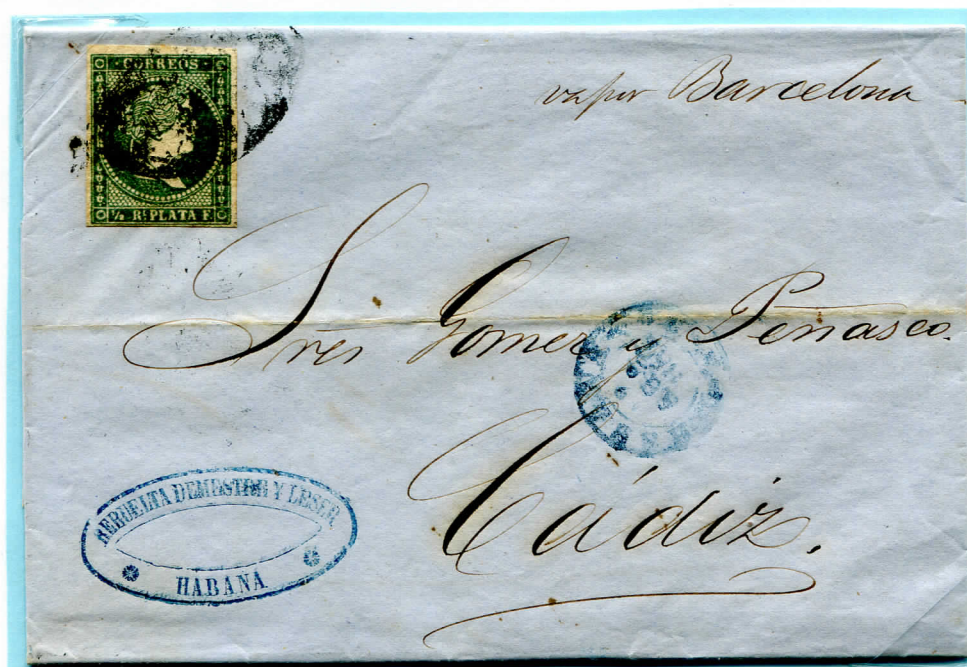 CORREOS
½ Rl PLATA F.
vapor Barcelona
Sres Gomez y Peñasco.
Cádiz.
DEMESTRE Y
HABANA